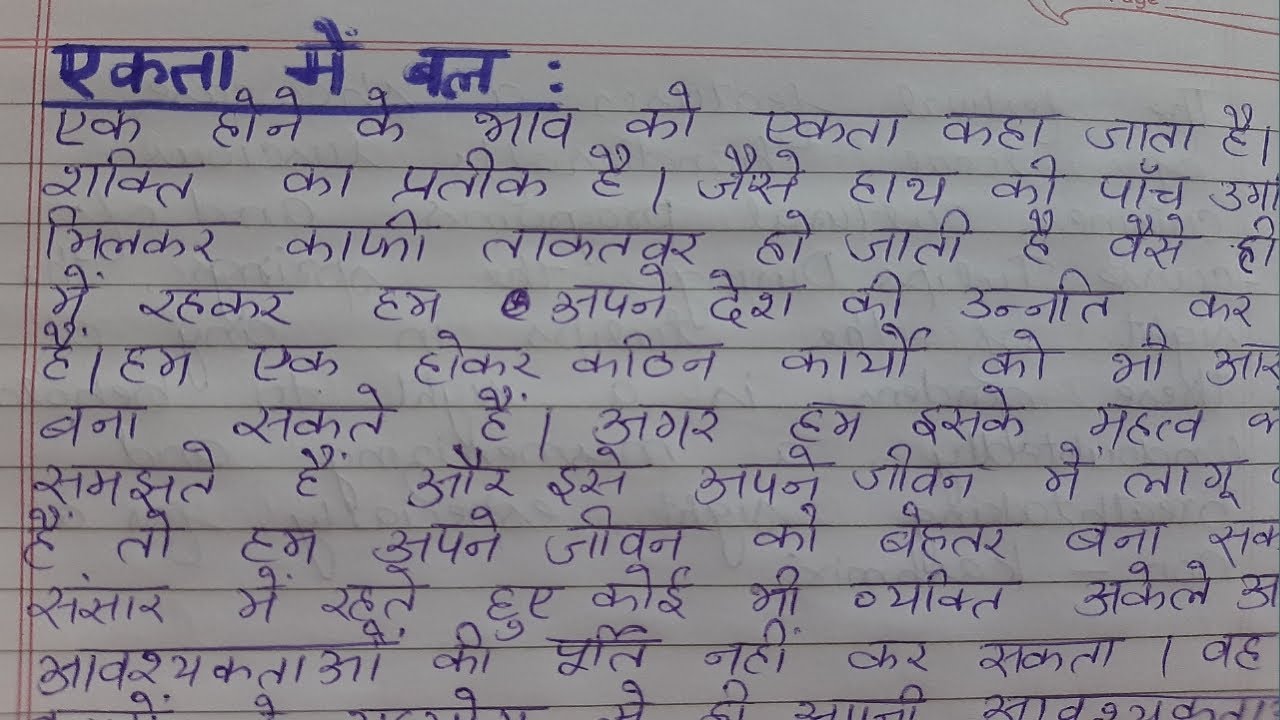 एकता में बल :
एक होने के भाव को एकता कहा जाता है।
शक्ति का प्रतीक है। जैसे हाथ की पाँच
मिलकर काफी ताकतवर हो जाती है वैसे ही
में रहकर हम अपने देश की उन्नति कर
हैं। हम एक होकर कठिन कार्यों को भी
बना सकते हैं। अगर हम इसके महत्व
समझते हैं और इसे अपने जीवन में लागू
हैं तो हम अपने जीवन को बेहतर बना
संसार में रहते हुए कोई भी व्यक्ति अकेले
आवश्यकताओं की पूर्ति नहीं कर सकता । वह